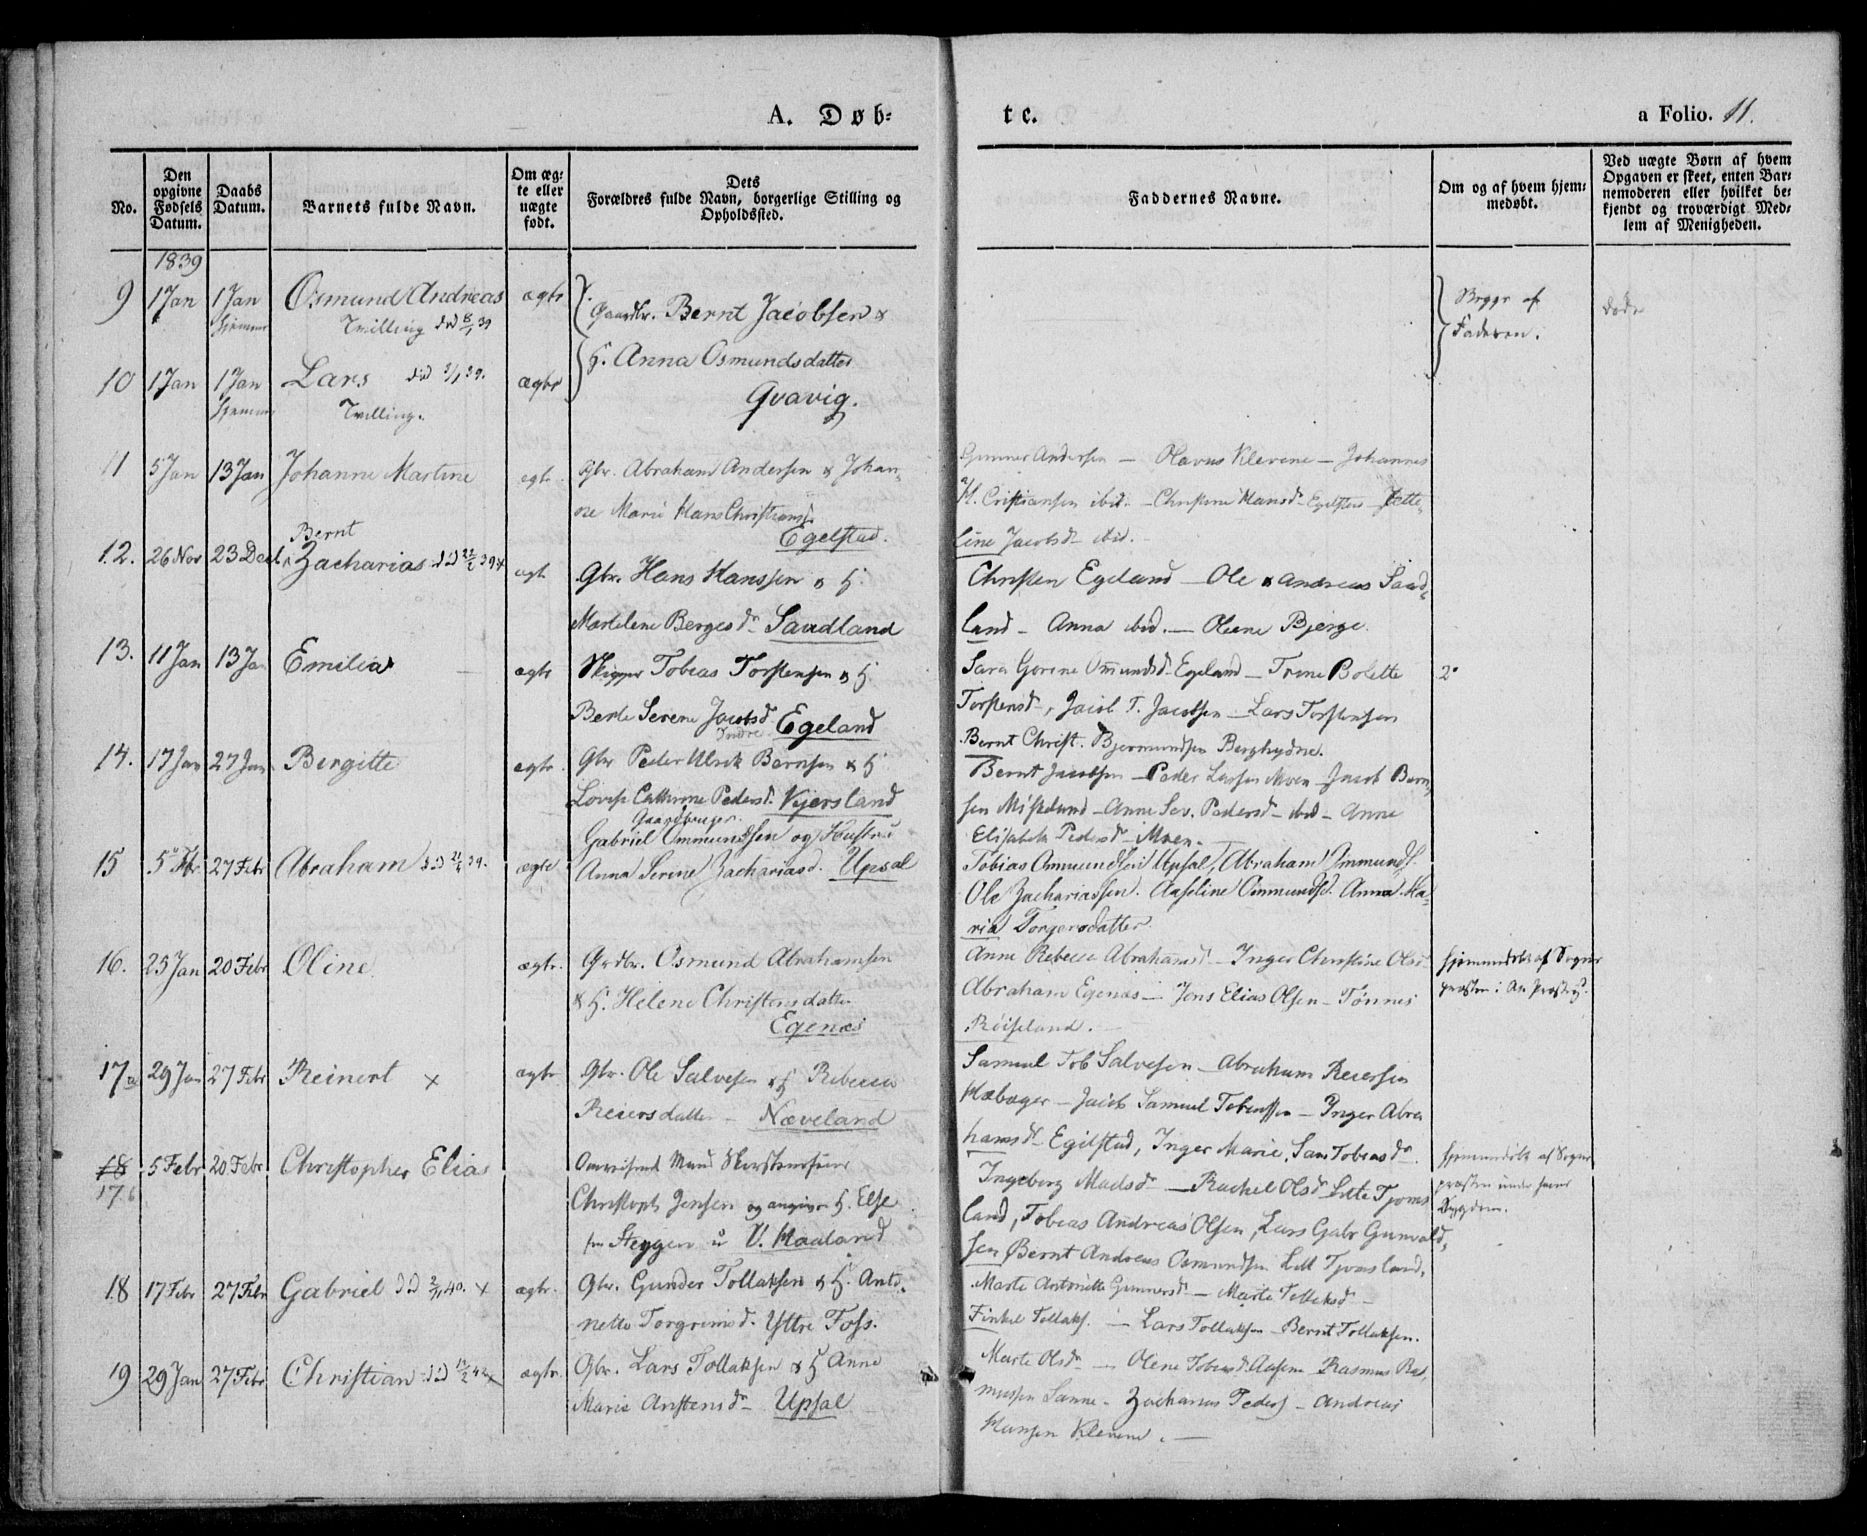 A. Døb-
te.
a Folio. 11.
No.
Den opgivne Fødsels Datum.
Daabs Datum.
Barnets fulde Navn.
Om ægte eller uægte født.
Dets
Forældres fulde Navn, borgerlige Stilling og Opholdssted.
Faddernes Navne.
Om og af hvem hjemmedøbt.
Ved uægte Børn af hvem Opgaven er skeet, enten Barnemoderen eller hvilket bekjendt og troværdigt Medlem af Menigheden.
1839
9 1 Jan 1 Jan Osmund Andreas ægte
hjemme Tvilling
Gaardbr. Bernt Jacobsen &
Begge af
Faderen.
døde
H. Anna Osmundsdatter
10 1 Jan 1 Jan Lars ægte
hjemme Tvilling.
Qvavig.
11 5 Jan 13 Jan Johanne Martine egte. Gbr. Abraham Andersen & Johan-
ne Marie Hans
Egelstad.
Gunner Andersen — Olavus Klevene — Johannes
H. Cristiansen ibid. — Christine Hansd. Egelstad — Jette-
line Jacobsd ibid.
Bernt
12. 26 Nov 23 Dec Zacharias egte Gbr. Hans Hanssen & H.
Berges d. Saadland
Christen Egeland — Ole & Andreas Saad-
land — Anna ibid. — Olene Bjerge.
13. 11 Jan 13 Jan Emilia ægte Skipper Tobias Torstensen & H.
Berte Serene Jacobsd Egeland
Indre
Sara Gorine Ommundsd Egeland — Trine Bolette
Torstensd, Jacob T. Jacobsen — Lars Torstensen
Bernt Christ. Bjermundsen
14. 17 Jan 27 Jan Birgitte egte. Gbr Peder Ulrik Berntsen & H
Lovise Cathrine Pedersd. Kjersland
Bernt Jacobsen — Peder Larsen Moen — Jacob Bern-
sen — Anne Ser. Pedersd — ibid — Anne
Elisabeth Pedersd — Moen.
Gaardbruger
Gabriel Ommundsen og Hustru
15 5 Fbr 27 Febr Abraham ægte Anna Serine Zachariasd. Upsal
Tobias Ommundsen Upsal, Abraham Ommunds.
Ole Zachariassen. Aaseline Ommundsd. Anna Ma-
ria Torgersdatter.
16. 25 Jan 20 Febr Oline ægte. Grdbr. Osmund Abrahamsen
& H. Helene Christensdatter
Egenæs
Anne Rebecca Abrahamsd — Inger Christine Olsd
Abraham Egenæs — Jens Elias Olsen — Tønnes
Røiseland.
hjemmedøbt af Sogne
præsten
17a 29 Jan 27 Febr Reinert x ægte Gbr. Ole Salvesen & H Rebecca
Reiersdatter — Næveland
Samuel Tob Salvesen — Abraham Reiersen
— Jacob Samuel — Inger Abra
hamsd Egilstad, Inger Marie, Tobiasd.
18
17b 5 Febr 20 Febr Christopher Elias
Christoph Jensen og angiven H. Else
U. Haaland
Ingeborg Madsd — Rachel Olsd Litle Tjoms
land, Tobias Andreas Olsen, Lars Gabr Gunvald-
sen Bernt Andreas Osmundsen Litl Tjomsland.
hjemmedøbt af Sogne
præsten
18 17 Febr 27 Febr Gabriel x ægte. Gbr. Gunder Tollaksen & H. Anto-
nette Torgrimsd. Yttre Foss.
Marte Antonette Gunnersd — Marte Tollaksd —
Tollaks. — Lars Tollaksen — Bernt Tollaksen.
19 29 Jan 27 Febr Christian ægte. Gbr. Lars Tollaksen & H Anne
Marie Anstensd — Upsal
Marte Olsd — Olene Tobiasd Aasene Rasmus Ras-
mussen Sanne — Zacharias Peders — Andreas
Hansen Klevene. —